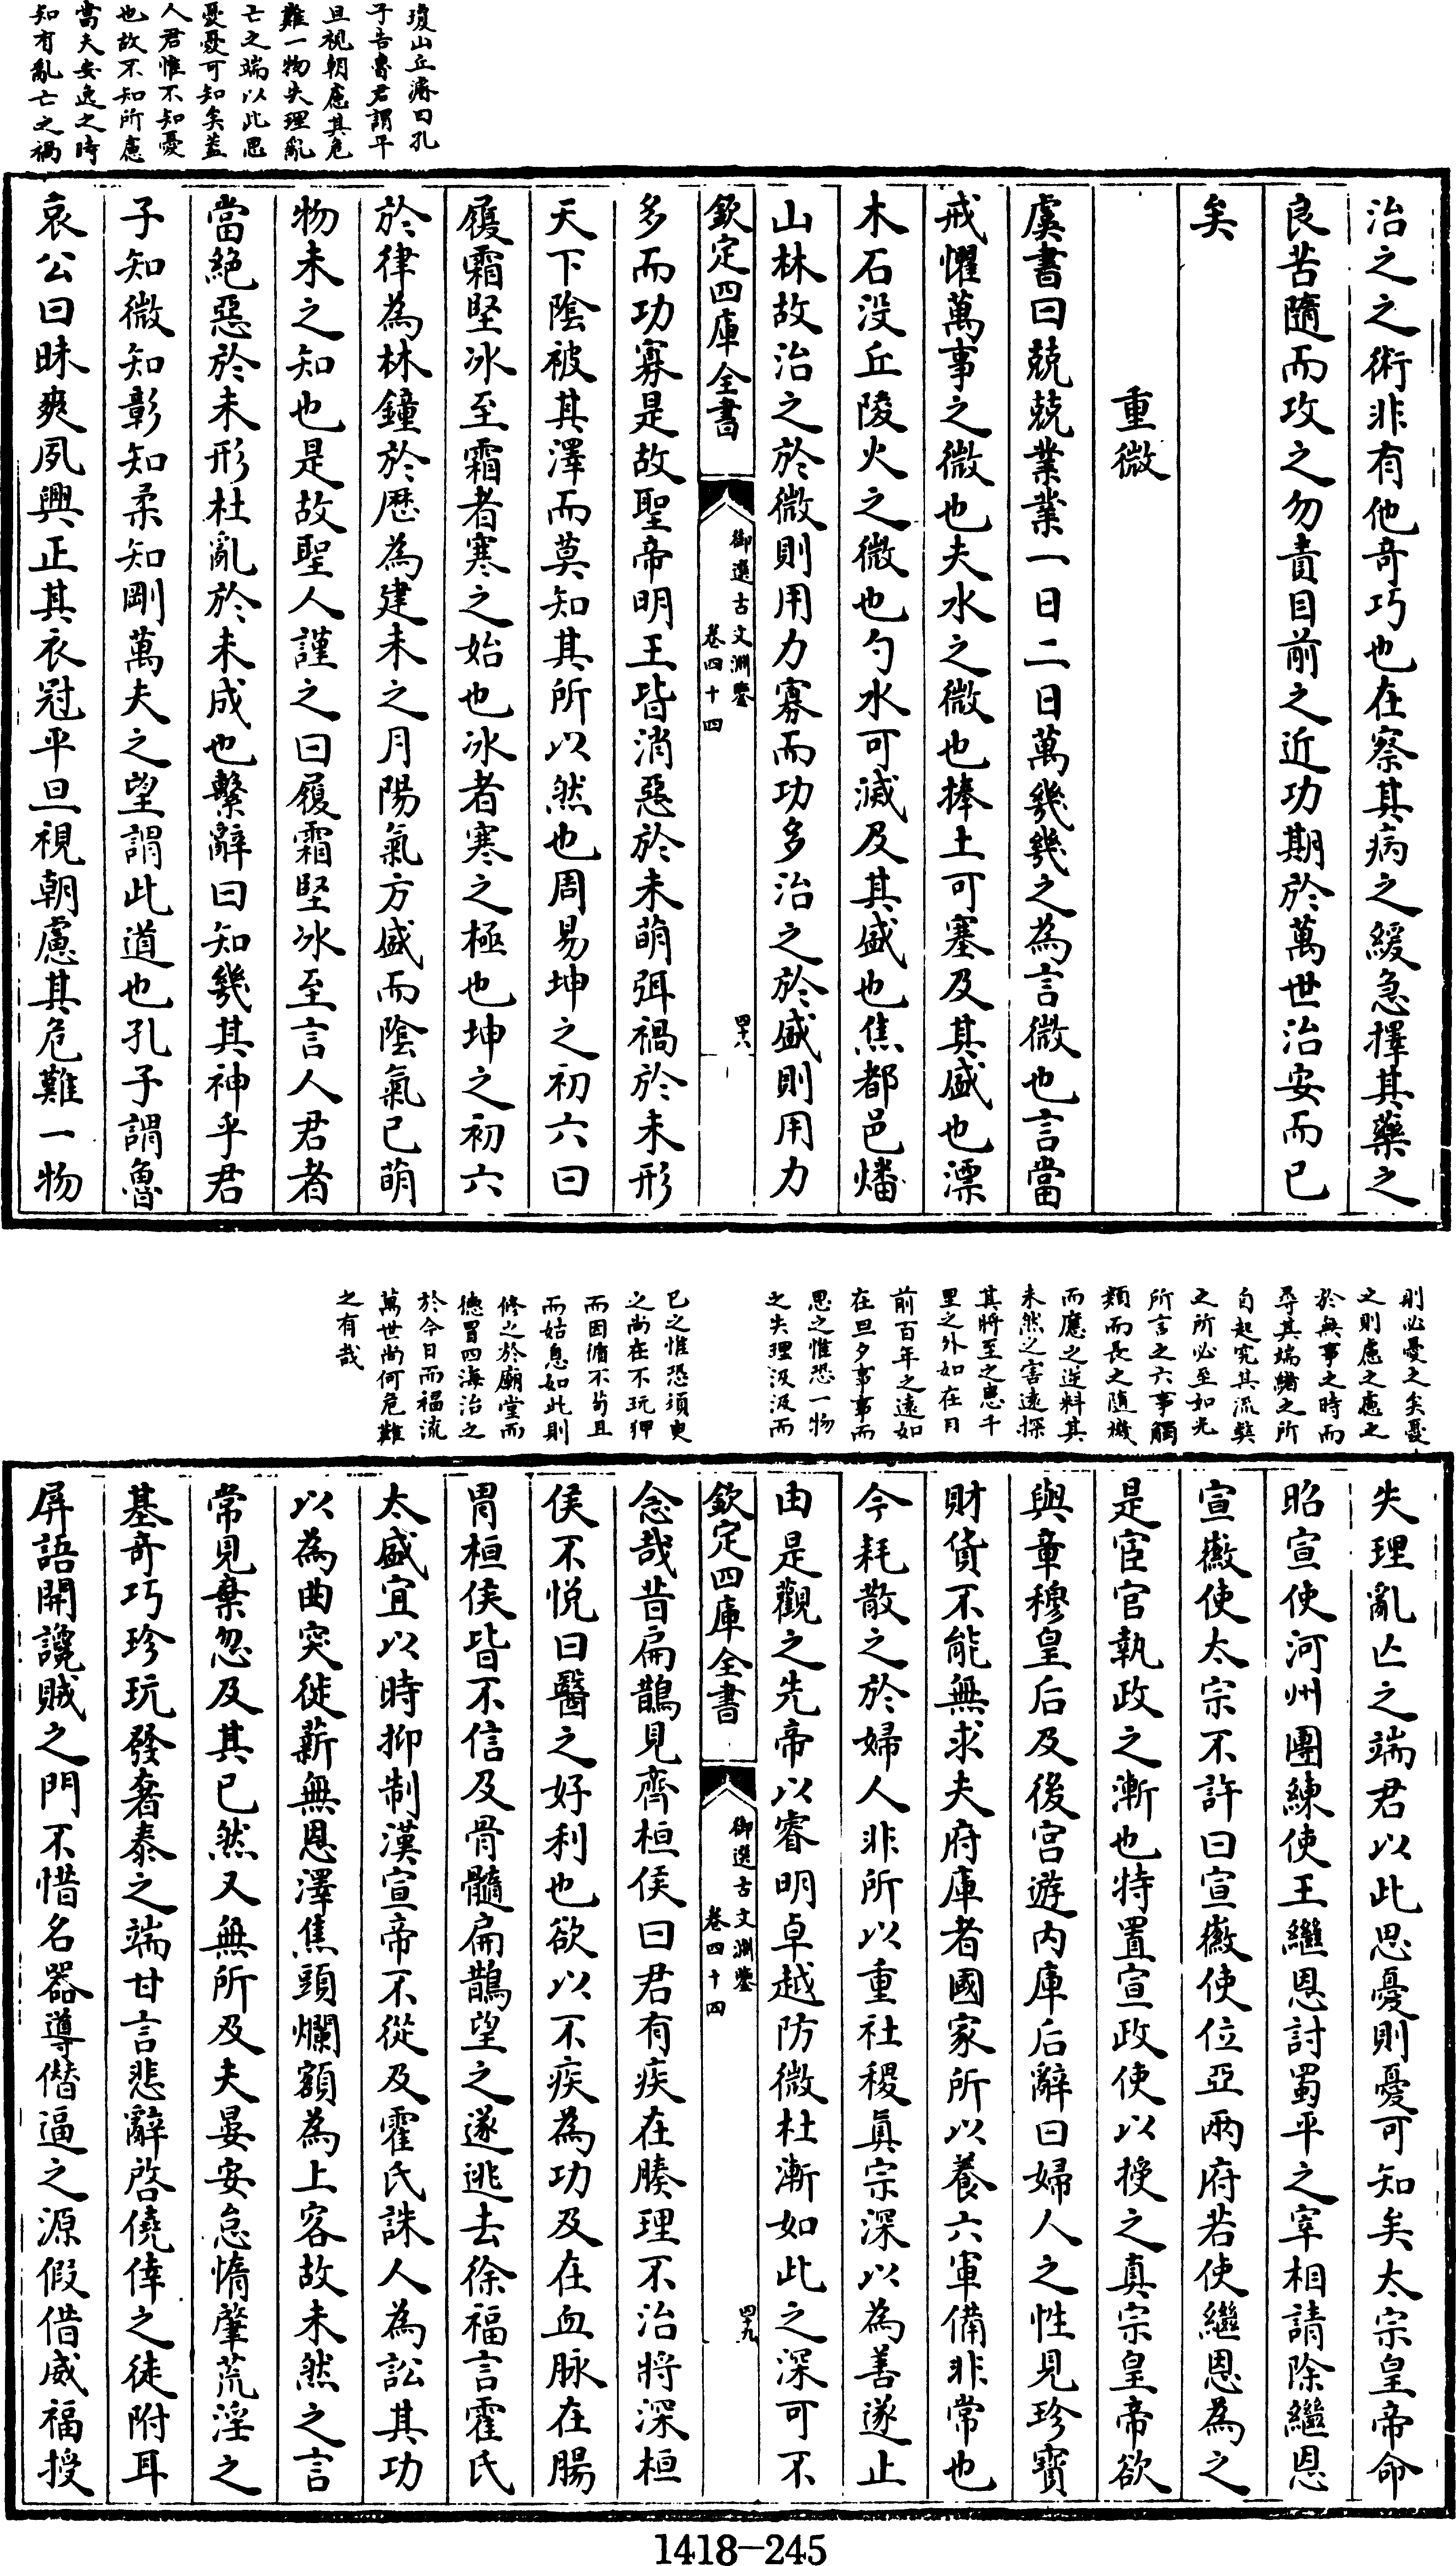 瓊山丘濬曰孔
子告魯君謂平
旦視朝慮其危
難一物失理亂
亡之端以此思
憂憂可知矣蓋
人君惟不知憂
也故不知所慮
當夫安逸之時
知有亂亡之禍
治之之術非有他奇巧也在察其病之緩急擇其藥之
良苦隨而攻之勿責目前之近功期於萬世治安而已
矣
重微
虞書曰兢兢業業一日二日萬幾幾之為言微也言當
戒懼萬事之微也夫水之微也捧土可塞及其盛也漂
木石沒丘陵火之微也勺水可滅及其盛也焦都邑燔
山林故治之於微則用力寡而功多治之於盛則用力
欽定四庫全書
御選古文淵鑒
卷四十四
四十八
多而功寡是故聖帝明王皆消惡於未萌弭禍於未形
天下陰被其澤而莫知其所以然也周易坤之初六曰
履霜堅冰至霜者寒之始也冰者寒之極也坤之初六
於律為林鐘於歷為建未之月陽氣方盛而陰氣已萌
物未之知也是故聖人謹之曰履霜堅冰至言人君者
當絕惡於未形杜亂於未成也繫辭曰知幾其神乎君
子知微知彰知柔知剛萬夫之望謂此道也孔子謂魯
哀公曰昧爽夙興正其衣冠平旦視朝慮其危難一物
則必憂之矣憂
之則慮之慮之
於無事之時而
尋其端緒之所
自起究其流弊
之所必至如光
所言之六事觸
類而長之隨機
而應之逆料其
未然之害遠探
其將至之患千
里之外如在目
前百年之遠如
在旦夕事事而
思之惟恐一物
之失理汲汲而
已之惟恐須臾
之尚在不玩狎
而因循不茍且
而姑息如此則
修之於廟堂而
德冒四海治之
於今日而福流
萬世尚何危難
之有哉
失理亂亡之端君以此思憂則憂可知矣太宗皇帝命
昭宣使河州團練使王繼恩討蜀平之宰相請除繼恩
宣徽使太宗不許曰宣徽使位亞兩府若使繼恩為之
是宦官執政之漸也特置宣政使以授之真宗皇帝欲
與章穆皇后及後宮遊內庫后辭曰婦人之性見珍寶
財貨不能無求夫府庫者國家所以養六軍備非常也
今耗散之於婦人非所以重社稷眞宗深以為善遂止
由是觀之先帝以睿明卓越防微杜漸如此之深可不
欽定四庫全書
御選古文淵鑒
卷四十四
四十九
念哉昔扁鵲見齊桓侯曰君有疾在腠理不治將深桓
侯不悅曰醫之好利也欲以不疾為功及在血脉在腸
胃桓侯皆不信及骨髓扁鵲望之遂逃去徐福言霍氏
太盛宜以時抑制漢宣帝不從及霍氏誅人為訟其功
以為曲突徙薪無恩澤焦頭爛額為上客故未然之言
常見棄忽及其已然又無所及夫晏安怠惰肇荒淫之
基奇巧珍玩發奢泰之端甘言悲辭啓僥倖之徒附耳
屏語開讒賊之門不惜名器導僭逼之源假借威福授
1418-245